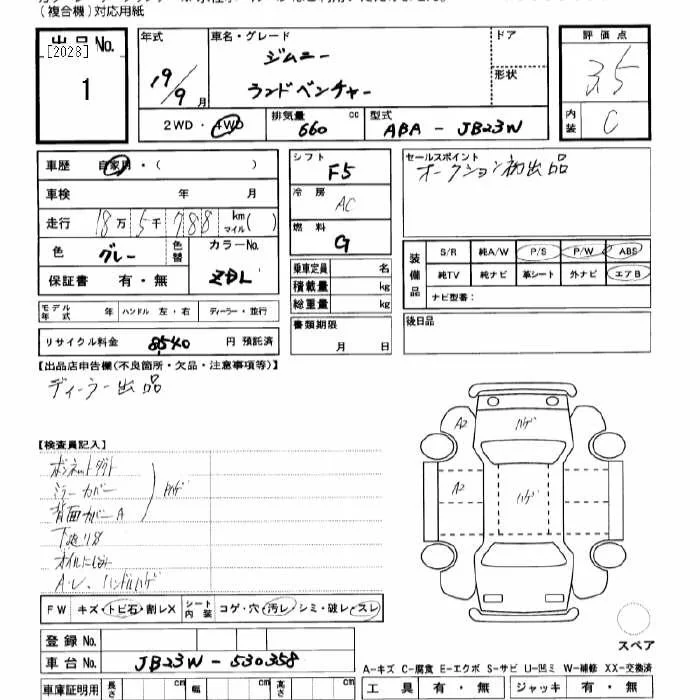 (複合機)対応用紙
出品No. [2028] 1
年式 19/9月
車名・グレード ジムニー
ランドベンチャー
ドア
形状
2WD・4WD
排気量 660 cc
型式 ABA - JB23W
評価点 3.5
内装 C
車歴 自家用・( )
車検 年 月
走行 18万5千788 km マイル( )
色 グレー 色替
カラーNo. ZDL
保証書 有・無
モデル年式 年 ハンドル 左・右 ディーラー・並行
リサイクル料金 8540 円 預託済
シフト F5
冷房 AC
燃料 G
乗車定員 名
積載量 kg
総重量 kg
書類期限
月 日
セールスポイント
オークション初出品
装備品
S/R 純A/W P/S P/W ABS
純TV 純ナビ 革シート 外ナビ エアB
ナビ型番:
後日品
【出品店申告欄(不良箇所・欠品・注意事項等)】
ディーラー出品
【検査員記入】
ミラーカバー
背面カバーA
下廻りS
オイルにじみ
A・L、ハンドルハゲ
FW キズ・トビ石・割レX
シート内装 コゲ・穴・汚レ・シミ・破レ・スレ
登録No.
車台No. JB23W-530358
車庫証明用 長さ cm 幅 cm 高さ cm
A2 ハゲ
A2 ハゲ
スペア
A-キズ C-腐食 E-エクボ S-サビ U-凹ミ W-補修 XX-交換済
工具 有・無 ジャッキ 有・無